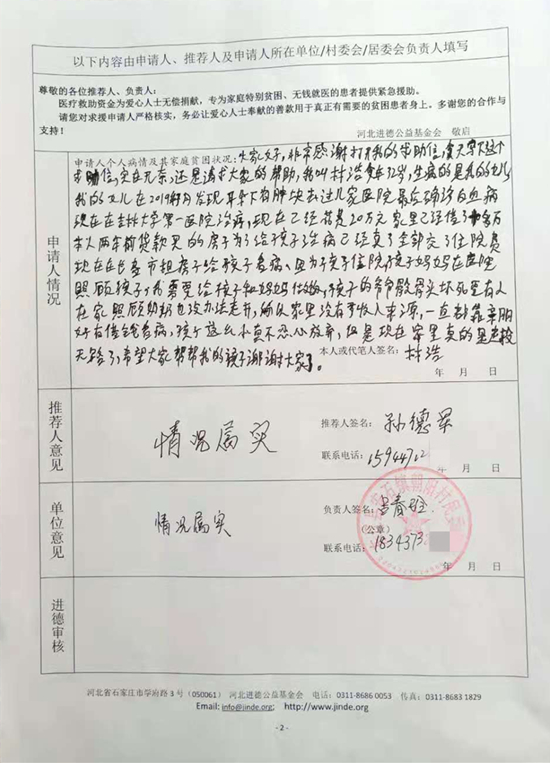 以下内容由申请人、推荐人及申请人所在单位/村委会/居委会负责人填写
尊敬的各位推荐人、负责人：
医疗救助资金为爱心人士无偿捐献，专为家庭特别贫困、无钱就医的患者提供紧急援助。
请您对求援申请人严格核实，务必让爱心人士奉献的善款用于真正有需要的贫困患者身上。多谢您的合作与
支持！
河北进德公益基金会 敬启
申请人情况
申请人个人病情及其家庭贫困状况：大家好，非常感谢打开我的求助信，
求助信，实在无奈，还是请求大家的帮助，我叫 生病的是我的女儿
我的女儿在2019年 月发现耳朵下有肿块去过几家医院最后确诊白血病
现在在吉林大学第一医院治病，现在已经花费20万元 家里已经借了
本人两年前贷款买的房子为了给孩子治病已经卖了全部交了住院费
现在在长春市租房子给孩子看病、因为孩子住院，孩子妈妈在医院
照顾孩子，我需要给孩子和妈妈做饭，孩子的爷爷股骨头坏死里有人
在家照顾 也没办法走开，
好友借钱看病，孩子这么小真不忍心放弃，但是现在家里真的是走投
无路了，希望大家帮帮我的孩子谢谢大家了。
本人或代笔人签名： 浩
年 月 日
推荐人意见
情况属实
推荐人签名：孙德军
联系电话：15944702
年 月 日
单位意见
情况属实
负责人签名：
（公章）
联系电话：1834373
年 月 日
进德审核
河北省石家庄市学府路 3 号（050061） 河北进德公益基金会 电话：0311-8686 0053 传真：0311-6683 1829
Email: info@jinde.org; http://www.jinde.org
- 2 -